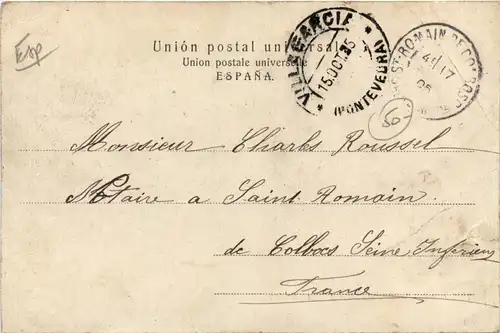 Esp
Unión postal universal
Union postale universelle
ESPAÑA.
VILLAGARCIA
15.OCT.05
(PONTEVEDRA)
ST-ROMAIN-DE-COLBOSC
17
05
50
Monsieur Charles Roussel
Notaire a Saint Romain
de Colbocs Seine Inferieure
France